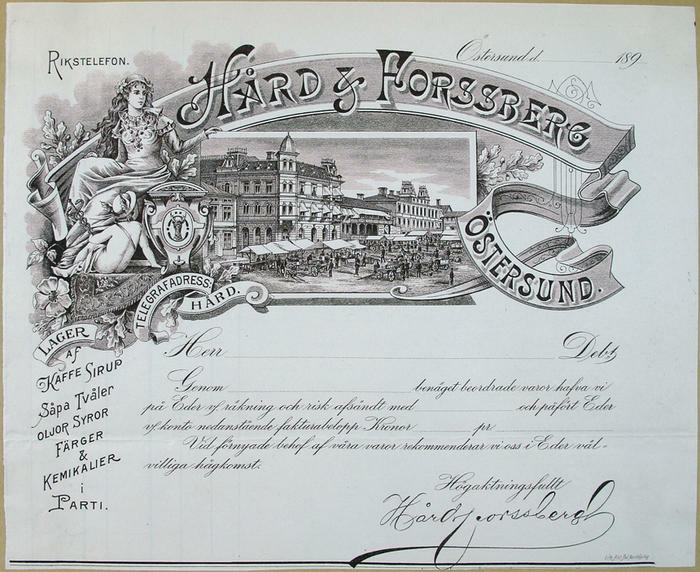 RIKSTELEFON.
Östersund d. 189
HÅRD & FORSSBERG
ÖSTERSUND.
TELEGRAFADRESS:
HÅRD.
LAGER
af
KAFFE SIRUP
Såpa Tvåler
OLJOR SYROR
FÄRGER
&
KEMIKALIER
i
PARTI.
Herr Debet
Genom benäget beordrade varor hafva vi
på Eder v/ räkning och risk afsändt med och påfört Eder
v/ konto nedanstående fakturabelopp Kronor pr
Vid förnyade behof af våra varor rekommenderar vi oss i Eder väl-
villiga hågkomst.
Högaktningsfullt
Hård & Forssberg